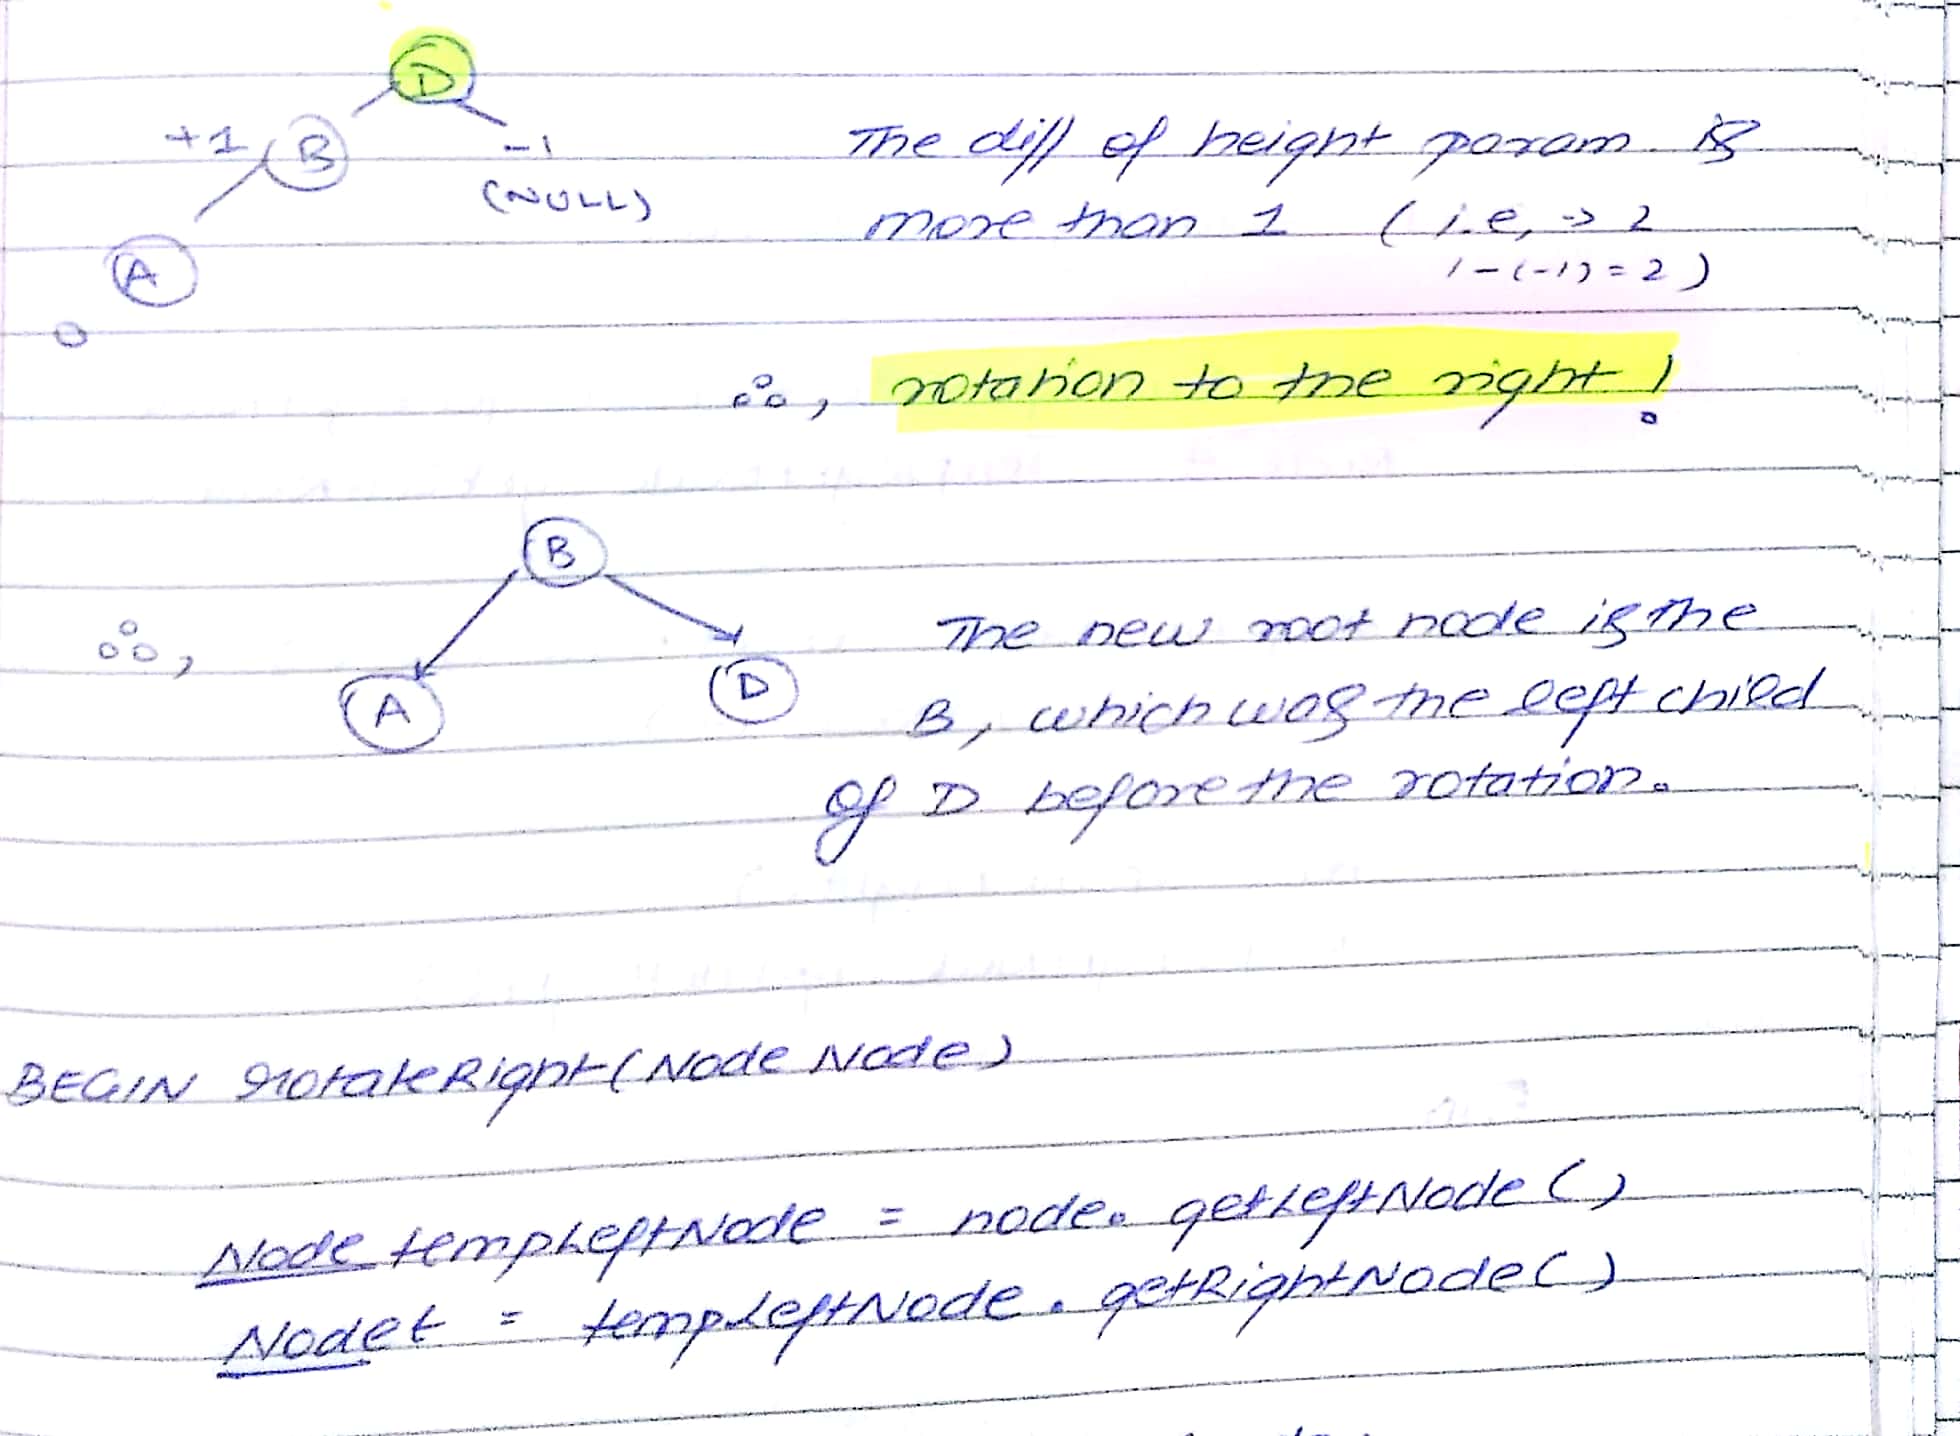 D
+1 B -1
(NULL)
A
0
The diff of height param. is
more than 1 (i.e, → 2
1-(-1) = 2)
∴, rotation to the right!
B
∴,
A D
The new root node is the
B, which was the left child
of D before the rotation.
BEGIN rotateRight(Node Node)
Node tempLeftNode = node. getLeftNode()
Node t = tempLeftNode. getRightNode()